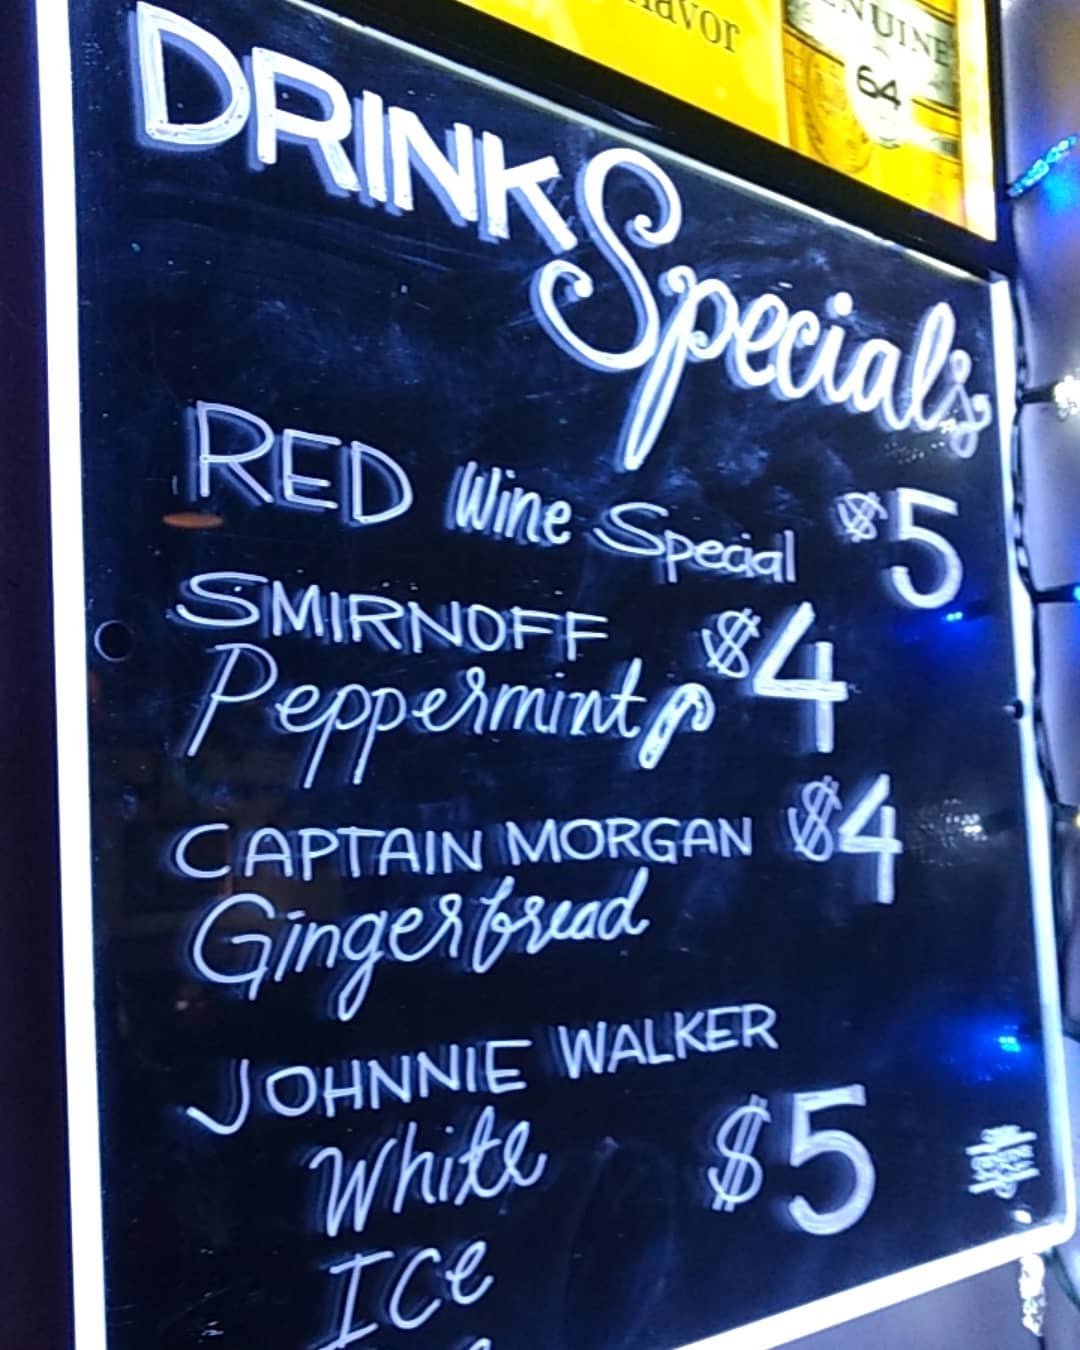 GENUINE
64
DRINK Specials
RED Wine Special $5
SMIRNOFF
Peppermint $4
CAPTAIN MORGAN $4
Gingerbread
JOHNNIE WALKER
White $5
ICe